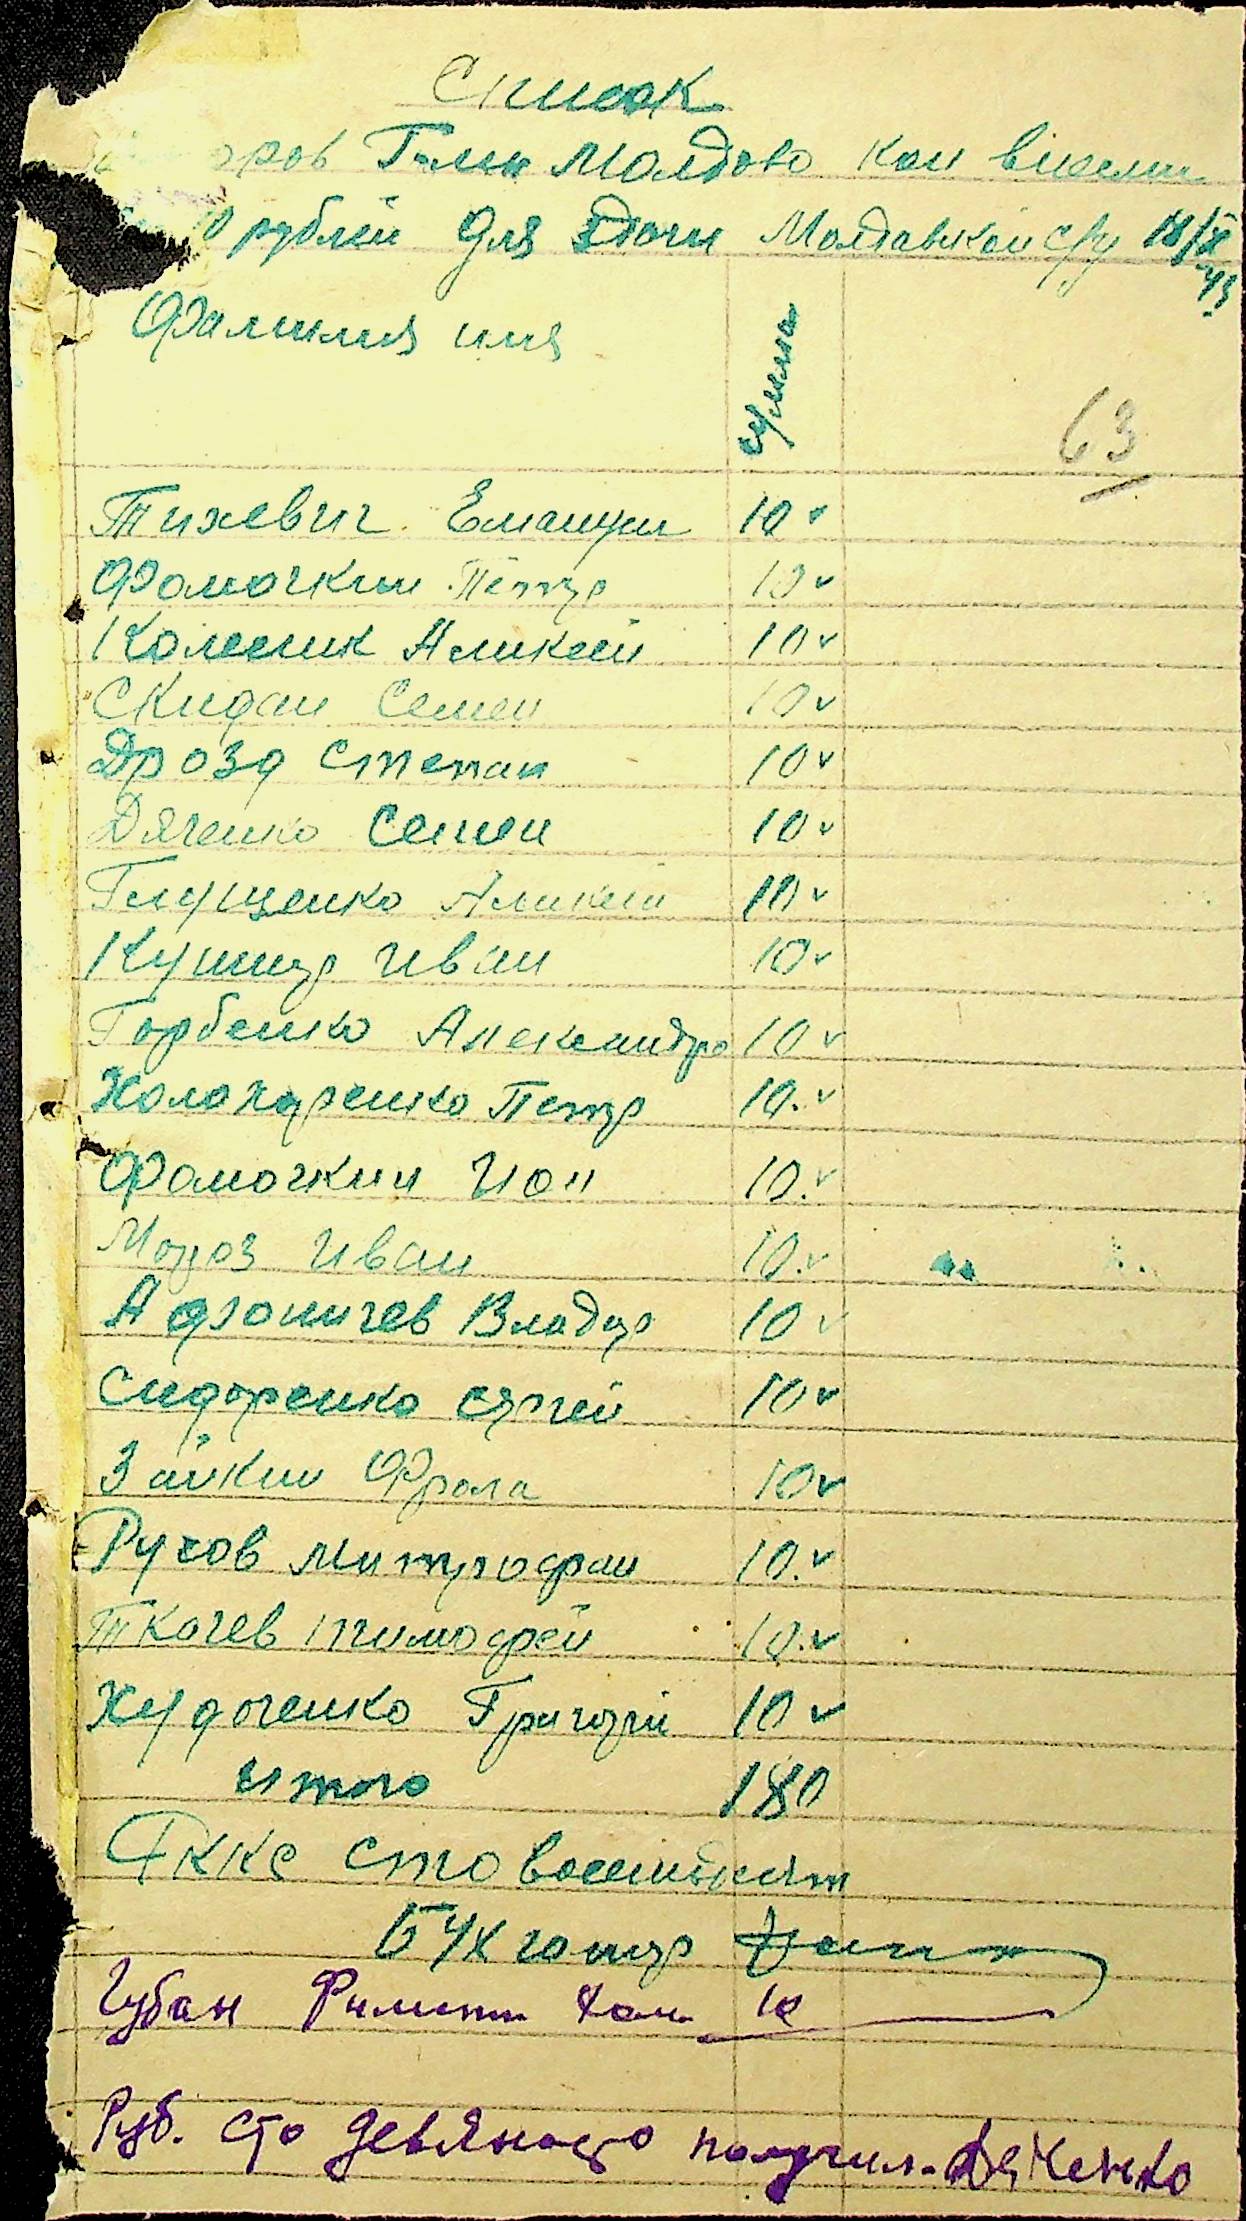 Список
Молдово кои внесли
рублей для сдачи Молдавской с/у 18/X
-43
Фамилия имя сумма
63
Тихевич Емануил 10 v
Фомочкин Пётр 10 v
Колесник Алексей 10 v
Скидан Семен 10 v
Дрозд Степан 10 v
Дяченко Семен 10 v
Глущенко Алексей 10 v
Кушнир Иван 10 v
Горбенко Александр 10 v
Холохуренко Петр 10. v
Фомочкин Ион 10. v
Мороз Иван 10. v
Афоничев Владир 10 v
Сидоренко Сергей 10 v
Зайкин Фрола 10 v
Русов Митрофан 10. v
Ткачев Тимофей 10. v
Худоченко Григорий 10 v
итого 180
сто восемьдесят
Бухгалтер
Губан 10
Руб. сто девяносто получил. Дяченко